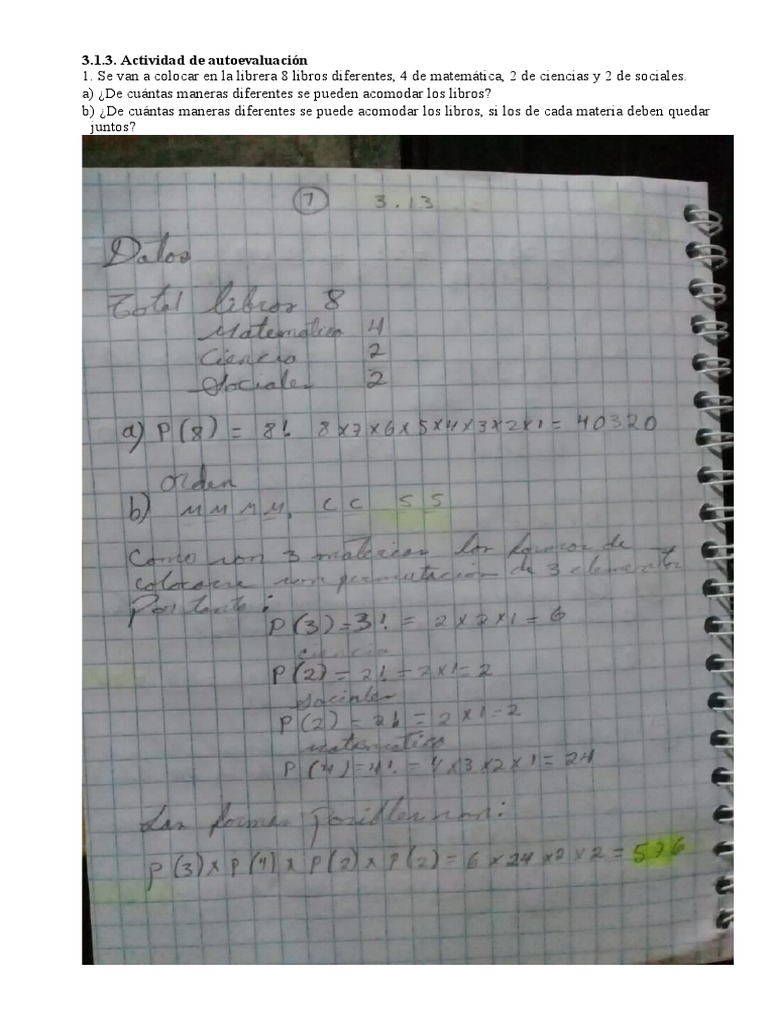 3.1.3. Actividad de autoevaluación
1. Se van a colocar en la librera 8 libros diferentes, 4 de matemática, 2 de ciencias y 2 de sociales.
a) ¿De cuántas maneras diferentes se pueden acomodar los libros?
b) ¿De cuántas maneras diferentes se puede acomodar los libros, si los de cada materia deben quedar
juntos?
3.13
Datos
Total libros 8
Matematica 4
Ciencia 2
Sociales 2
a) P(8) = 8! 8x7x6x5x4x3x2x1 = 40320
orden
b) M M M M, C C S S
Como son 3 materias las formas de
colocarse son permutación de 3 elementos
Por tanto:
P(3)=3! = 2x2x1 = 6
ciencia
P(2) = 2! = 2x1=2
sociales
P(2) = 2! = 2x1=2
matematica
P(4)=4! = 4x3x2x1 = 24
Las formas posibles son:
P(3)x P(4)x P(2)x P(2) = 6x24x2x2 = 576